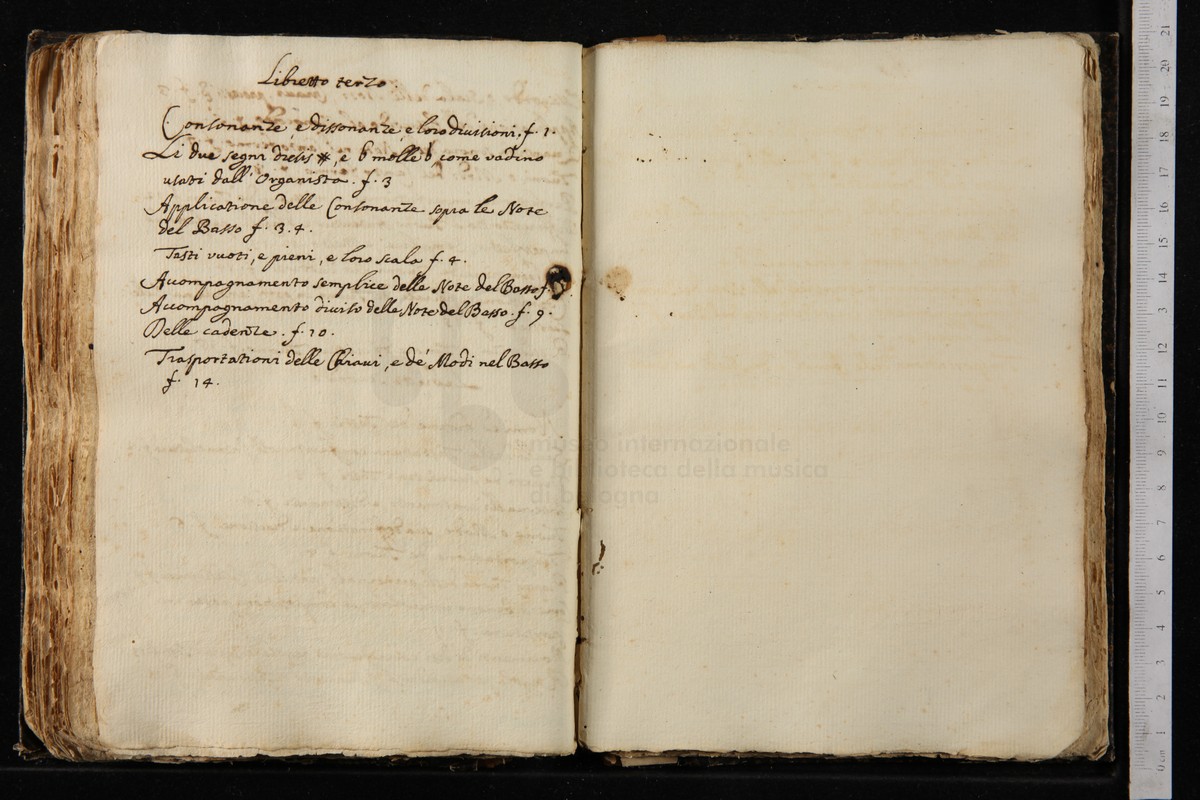 Libretto terzo.
Consonanze e dissonanze, e loro divisioni. f. 1.
Li due segni diesis #, e b molle b, come vadino
usati dall' Organista. f. 3
Applicatione delle Consonanze sopra le Note
del Basso f. 3. 4.
Tasti vuoti, e pieni, e loro scala f. 4.
Accompagnamento semplice delle Note del Basso f.
Accompagnamento diviso delle Note del Basso. f. 9.
Delle cadenze. f. 10.
Trasportationi delle Chiavi, e de' Modi nel Basso
f. 14.
museo internazionale
e biblioteca della musica
di bologna
0 cm 1 2 3 4 5 6 7 8 9 10 11 12 13 14 15 16 17 18 19 20 21